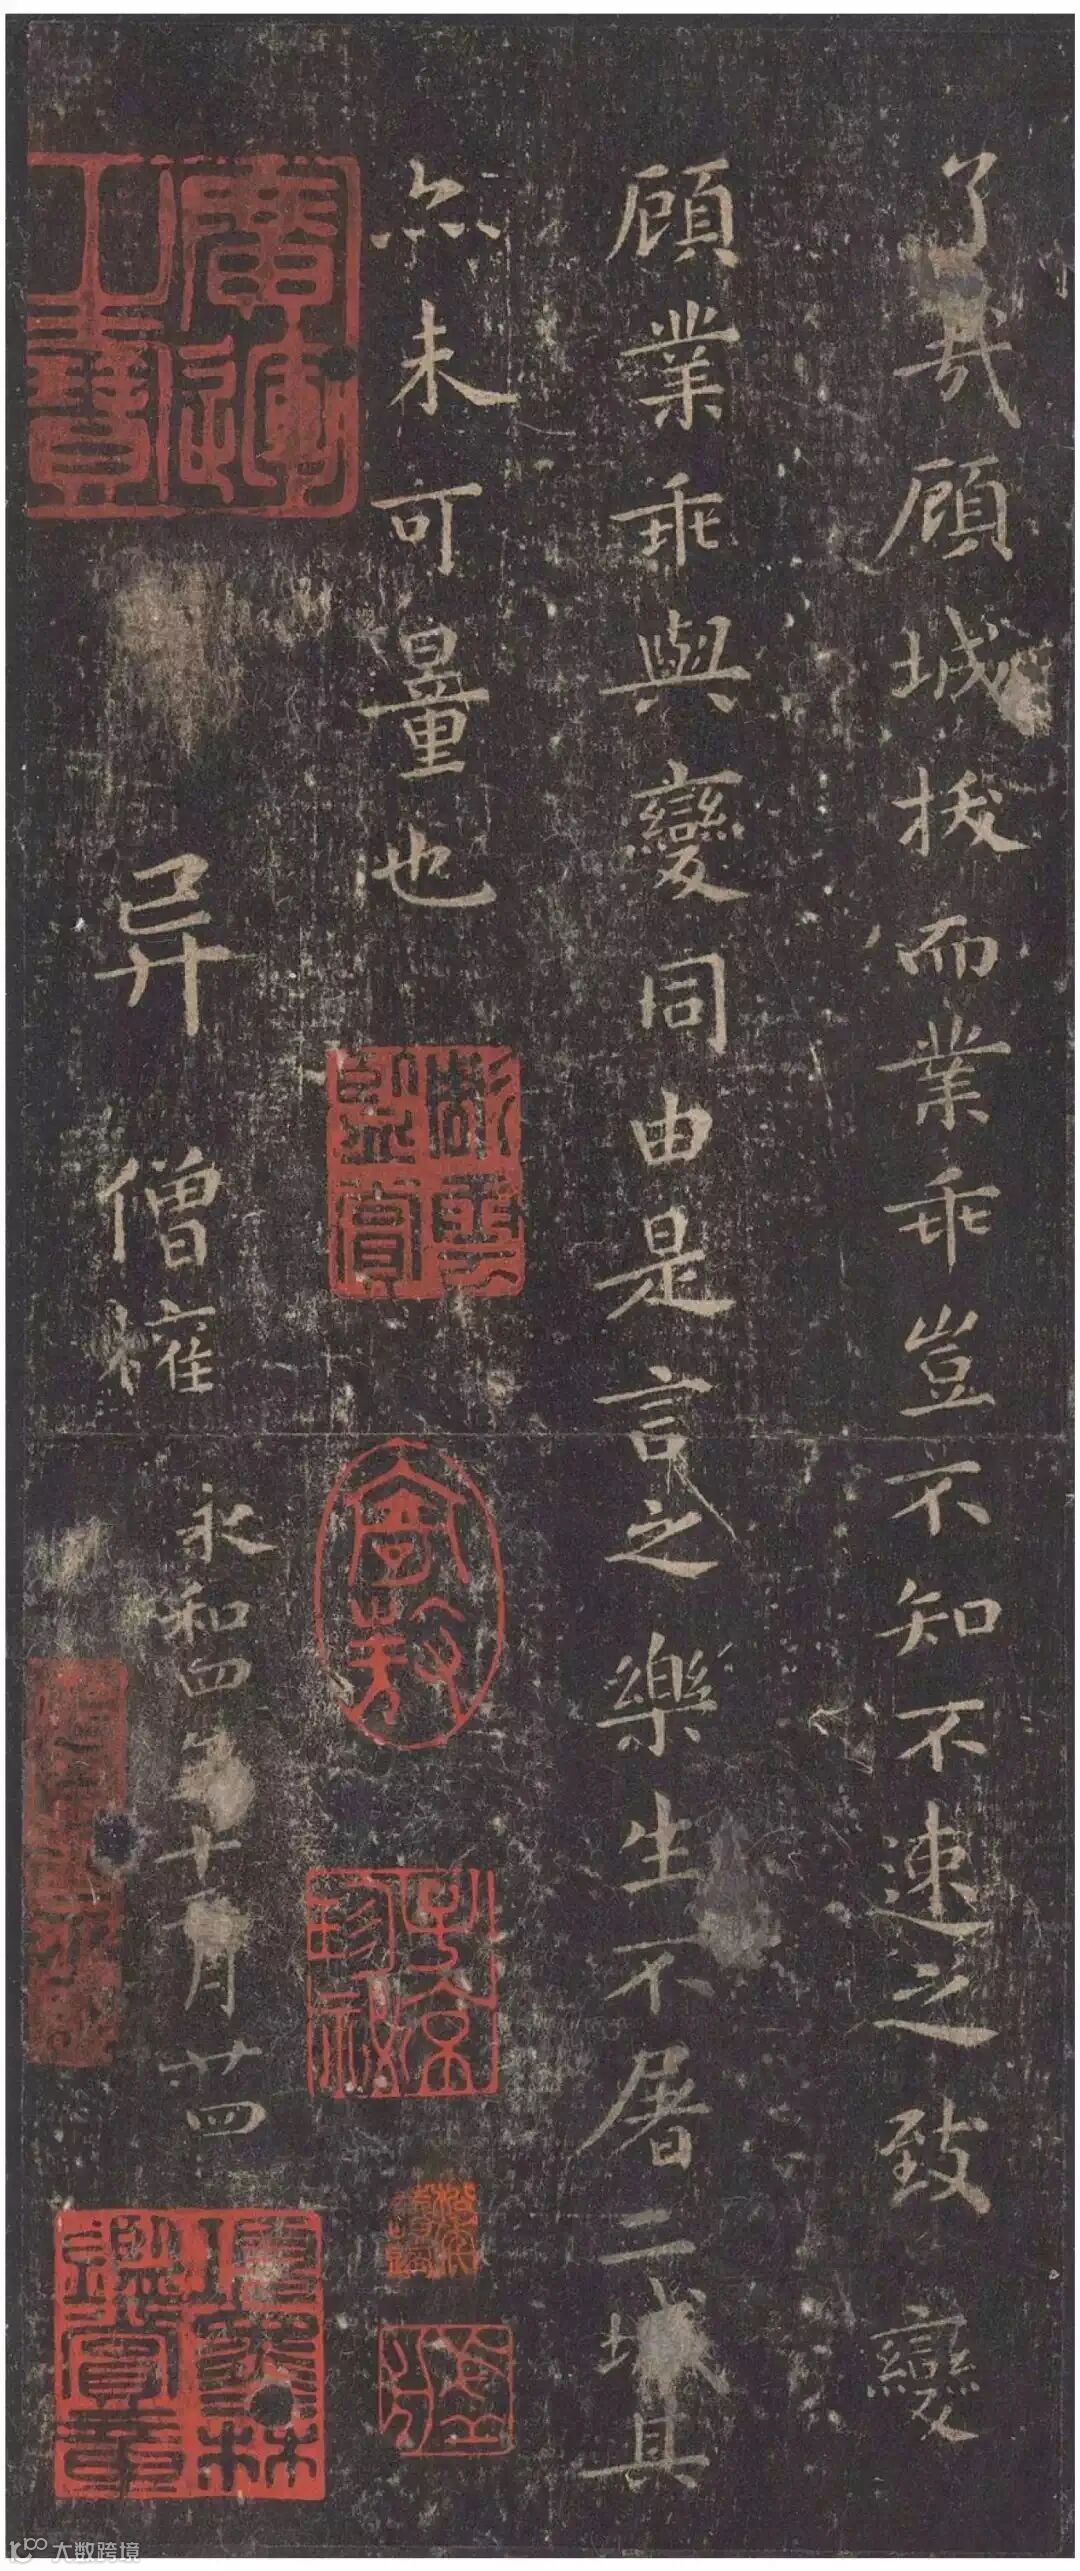 了哉顧城拔而業乖豈不知不速之致變
顧業乖與變同由是言之樂生不屠二城其
亦未可量也
异 僧權
永和四年十二月廿四
廣運之寶
大数跨境